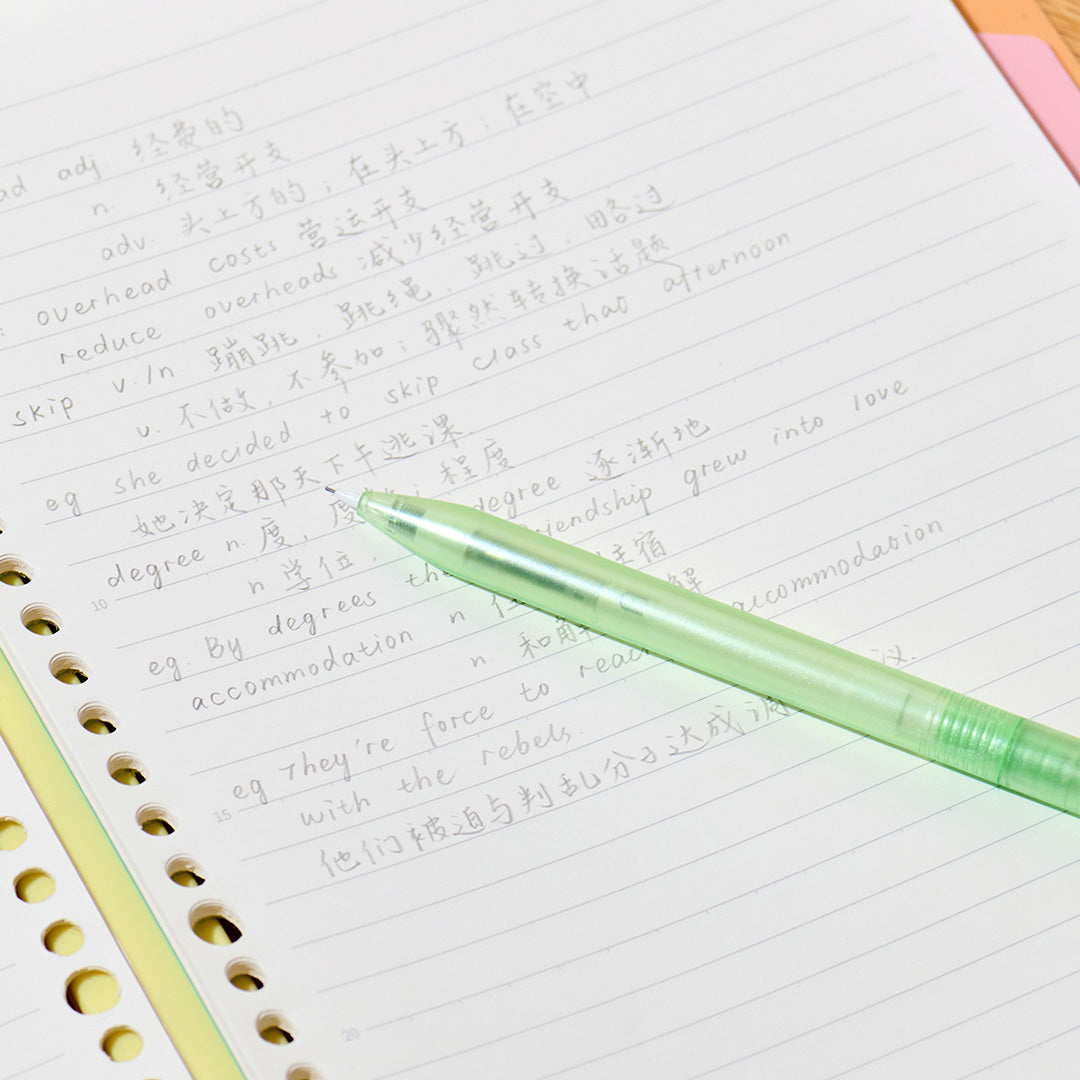 ad adj. 经费的
n. 经营开支
adv. 头上方的；在头上方；在空中
: overhead costs 营运开支
reduce overheads 减少经营开支
skip v./n. 蹦跳，跳绳，跳过，略过
v. 不做，不参加；骤然转换话题
eg she decided to skip class that afternoon
她决定那天下午逃课
degree n. 度，度 程度
n 学位， degree 逐渐地
10
eg. By degrees the friendship grew into love
accommodation n 住宿
n. 和解 解
eg They're force to reach accommodation
15
with the rebels.
他们被迫与判乱分子达成调 议.
20